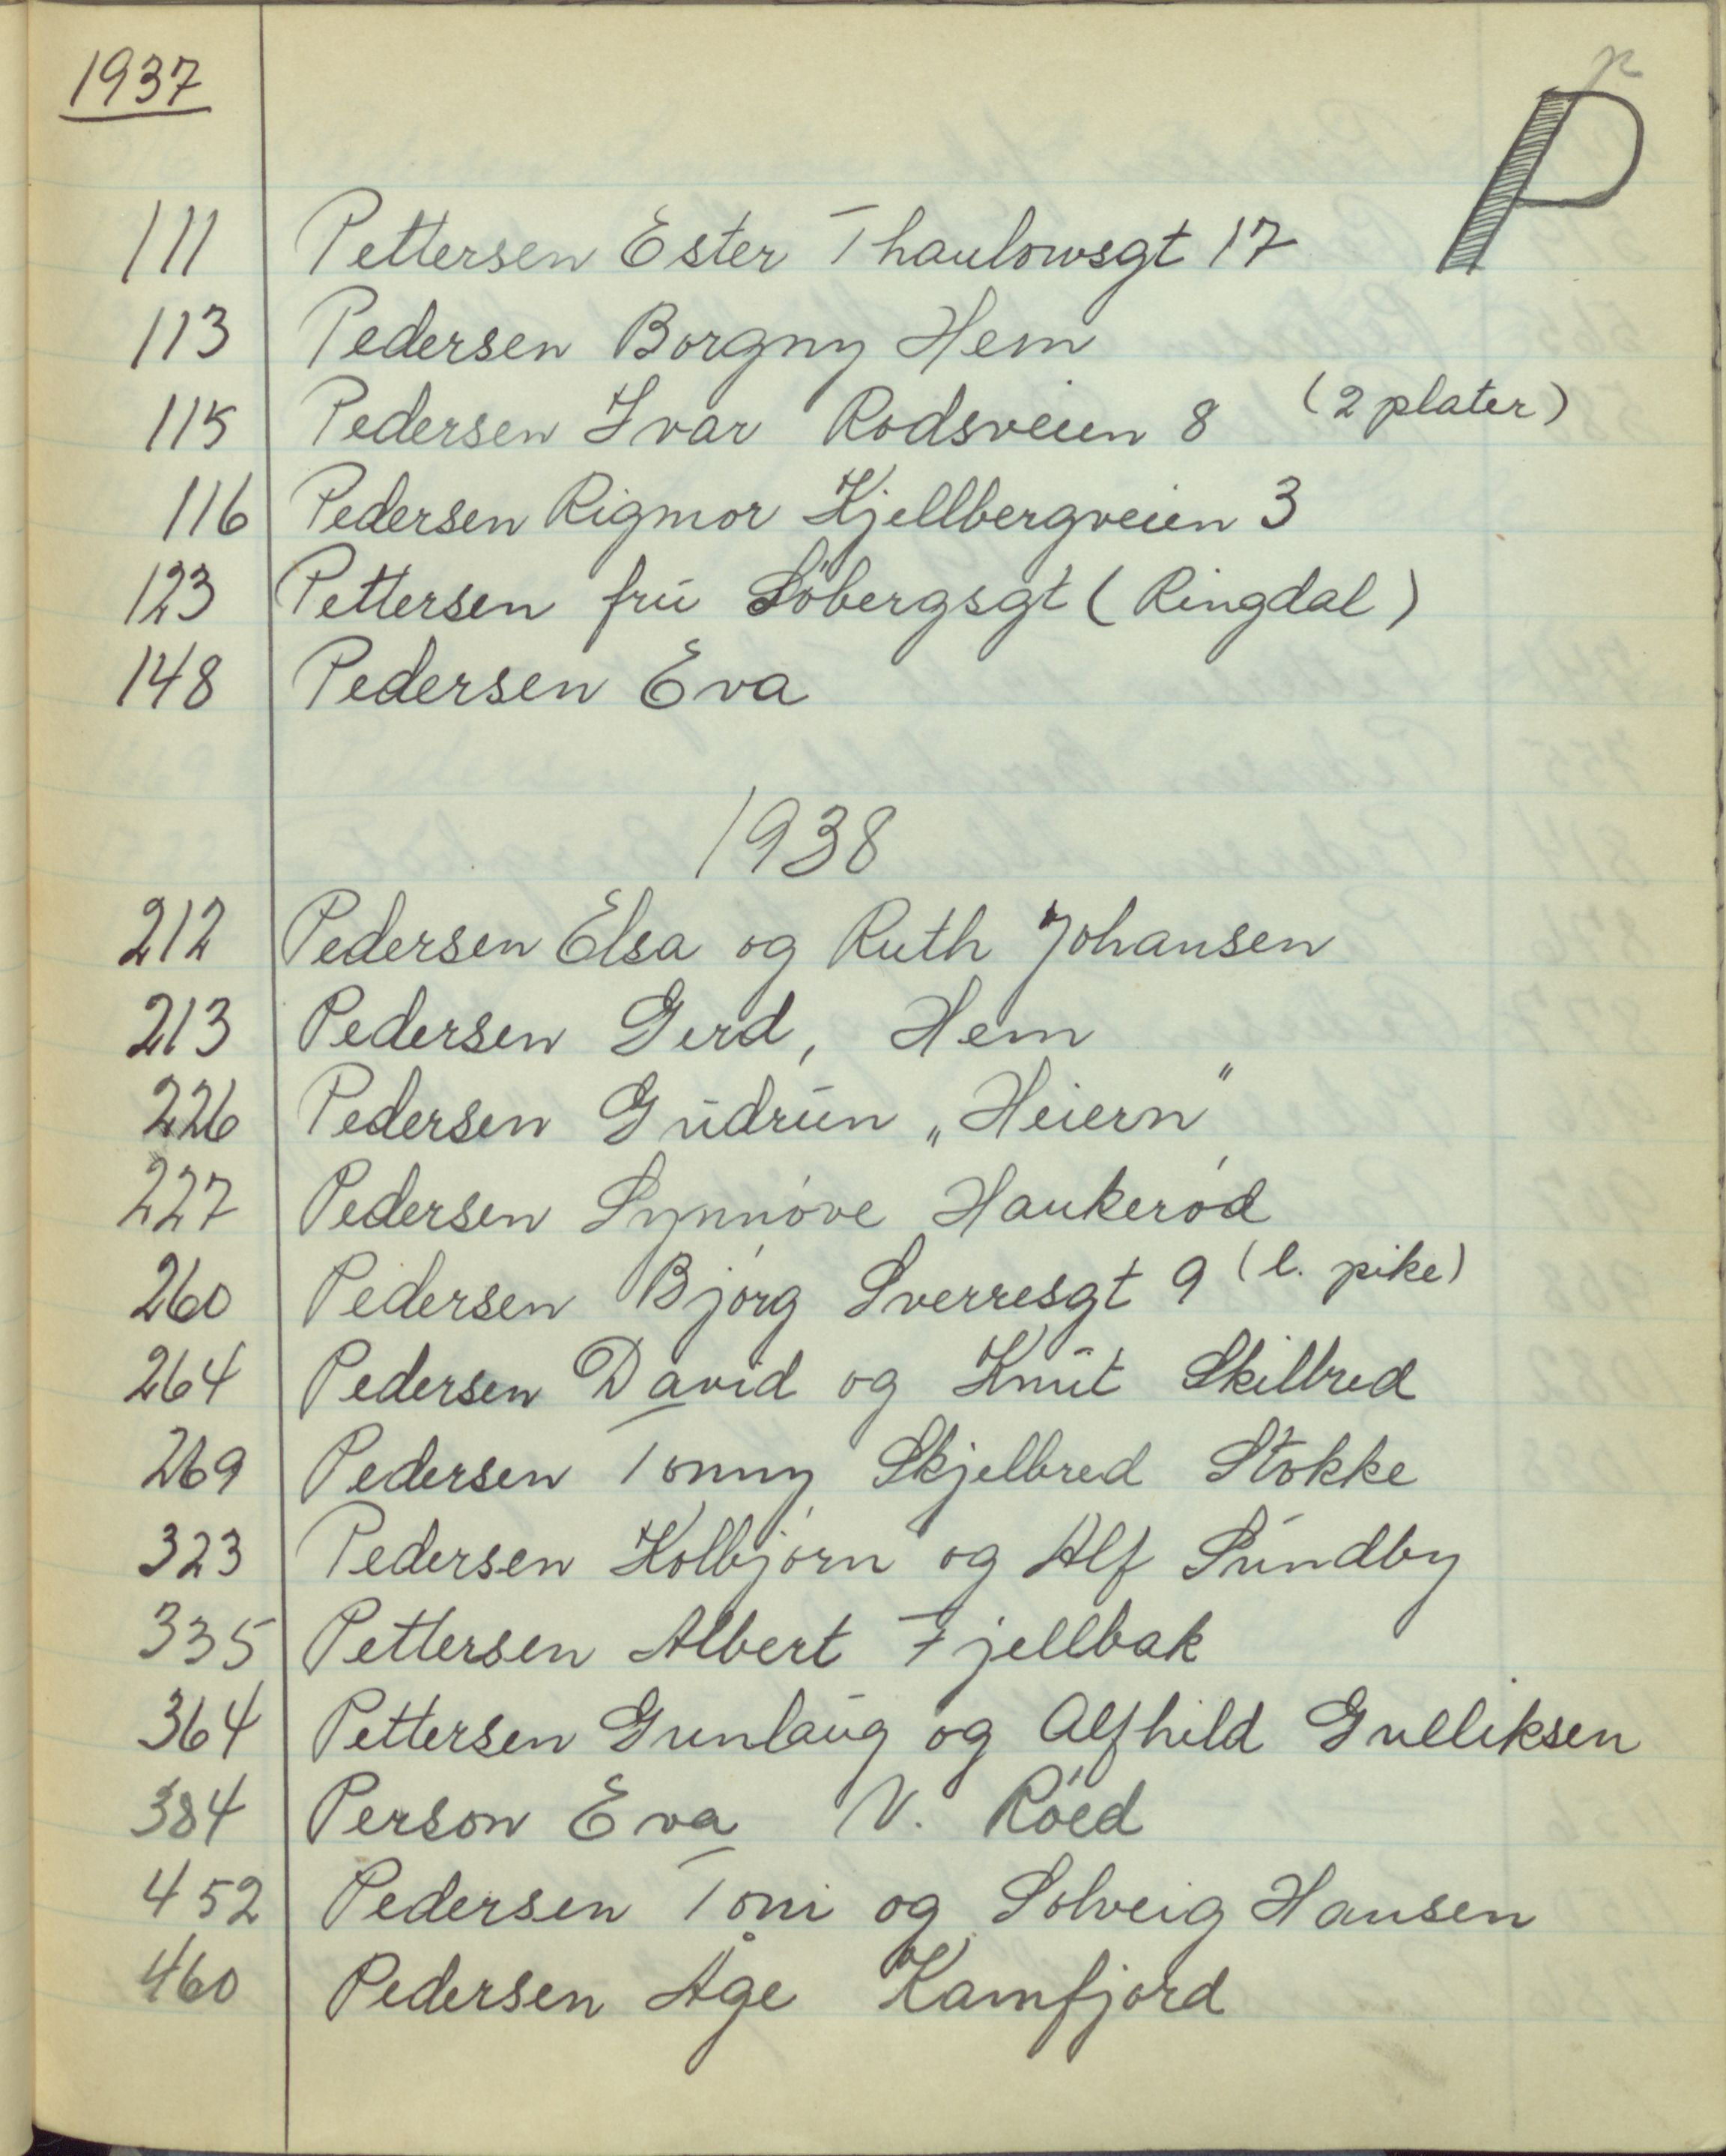 1937
p
P
111 Pettersen Ester Thaulowsgt 17
113 Pedersen Borgny Hem
115 Pedersen Ivar Rodsveien 8 (2 plater)
116 Pedersen Rigmor Kjellbergveien 3
123 Pettersen fru Söbergsgt (Ringdal)
148 Pedersen Eva
1938
212 Pedersen Elsa og Ruth Johansen
213 Pedersen Gerd, Hem
226 Pedersen Gudrun „Heiern"
227 Pedersen Synnóve Haukeród
260 Pedersen Bjórg Sverresgt 9 (l. pike)
264 Pedersen David og Knut Skilbred
269 Pedersen Tonny Skjelbred Stokke
323 Pedersen Kolbjórn og Alf Sundby
335 Pettersen Albert Fjellbak
364 Pettersen Gunlaug og Alfhild Gulliksen
384 Person Eva V. Róed
452 Pedersen Toni og Solveig Hansen
460 Pedersen Åge Kamfjord